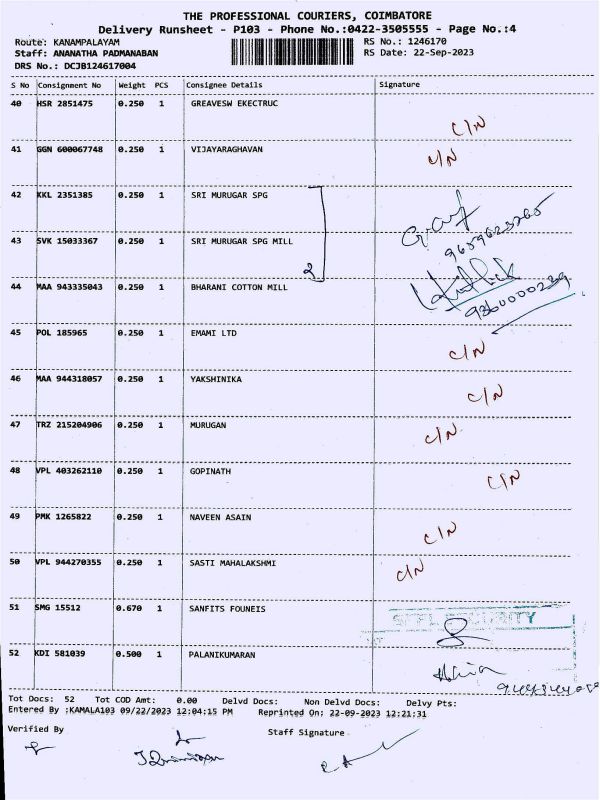 THE PROFESSIONAL COURIERS, COIMBATORE
Delivery Runsheet - P103 - Phone No.:0422-3505555 - Page No.:4
Route: KANAMPALAYAM RS No.: 1246170
Staff: ANANATHA PADMANABAN RS Date: 22-Sep-2023
DRS No.: DCJB124617004
S No Consignment No Weight PCS Consignee Details Signature
40 HSR 2851475 0.250 1 GREAVESW EKECTRUC
C/N
41 GGN 600067748 0.250 1 VIJAYARAGHAVAN
C/N
42 KKL 2351385 0.250 1 SRI MURUGAR SPG
43 SVK 15033367 0.250 1 SRI MURUGAR SPG MILL
2
44 MAA 943335043 0.250 1 BHARANI COTTON MILL
9360000239
45 POL 185965 0.250 1 EMAMI LTD
C/N
46 MAA 944318057 0.250 1 YAKSHINIKA
C/N
47 TRZ 215204906 0.250 1 MURUGAN
C/N
48 VPL 403262110 0.250 1 GOPINATH
C/N
49 PMK 1265822 0.250 1 NAVEEN ASAIN
C/N
50 VPL 944270355 0.250 1 SASTI MAHALAKSHMI
C/N
51 SMG 15512 0.670 1 SANFITS FOUNEIS
SECURITY
52 KDI 581039 0.500 1 PALANIKUMARAN
Tot Docs: 52 Tot COD Amt: 0.00 Delvd Docs: Non Delvd Docs: Delvy Pts:
Entered By :KAMALA103 09/22/2023 12:04:15 PM Reprinted On; 22-09-2023 12:21:31
Verified By Staff Signature